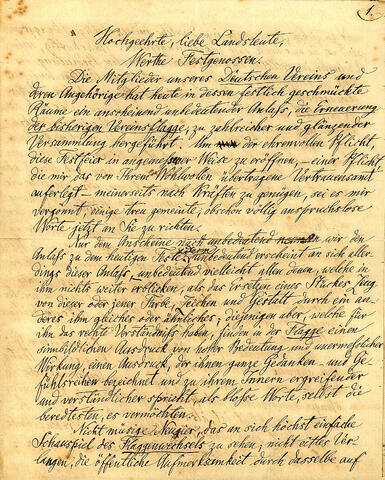 1.
Hochgeehrte, liebe Landsleute,
Werthe Festgenossen.
Die Mitglieder unseres Deutschen Vereins und
deren Angehörige hat heute in dessen festlich geschmückte
Räume ein anscheinend unbedeutender Anlaß, die Erneuerung
der bisherigen Vereinsflagge, zu zahlreicher und glänzender
Versammlung hergeführt. Um der ehrenvollen Pflicht,
diese Festfeier in angemessner Weise zu eröffnen, – einer Pflicht
die mir das von Ihrem Wohlwollen übertragene Vertrauensamt
auferlegt – meinerseits nach Kräften zu genügen, sei es mir
vergönnt, einige treu gemeinte, obschon völlig anspruchslose
Worte jetzt an Sie zu richten.
Nur dem Anscheine nach unbedeutend wir den
Anlaß zu dem heutigen Feste; unbedeutend erscheint an sich aller-
dings dieser Anlaß, unbedeutend vielleicht allen denen, welche in
ihm nichts weiter erblicken, als das Ersetzen eines Stückes Zeug
von dieser oder jener Farbe, Zeichen und Gestalt durch ein an-
deres ihm gleiches oder ähnliches; diejenigen aber, welche für
ihn das rechte Verständniß haben, finden in der Flagge einen
sinnbildlichen Ausdruck von hoher Bedeutung und unermesslicher
Wirkung, einen Ausdruck, der ihnen ganze Gedanken- und Ge-
fühlsreihen bezeichnet und zu ihrem Innern ergreifender
und verständlicher spricht, als bloße Worte, selbst die
beredtesten, es vermöchten.
Nicht müssige Neugier, das an sich höchst einfache
Schauspiel des Flaggenwechsels zu sehen; nicht eitles Ver-
langen, die öffentliche Aufmerksamkeit durch dasselbe auf